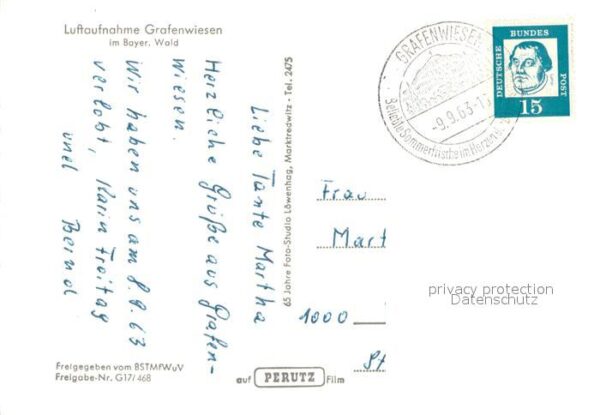 Luftaufnahme Grafenwiesen
im Bayer. Wald
Liebe Tante Martha
Herzliche Grüße aus Grafen-
wiesen.
Wir haben uns am 8.9.63
verlobt, Karin Freitag
und Bernd
Freigegeben vom BSTMfWuV
Freigabe-Nr. G17/468
65 Jahre Foto-Studio Löwenhag, Marktredwitz - Tel. 2475
auf PERUTZ Film
GRAFENWIESEN
-9.9.63-1
Beliebte Sommerfrische im Herzen
DEUTSCHE BUNDES POST
15
Frau
Mart
1000
St
privacy protection
Datenschutz